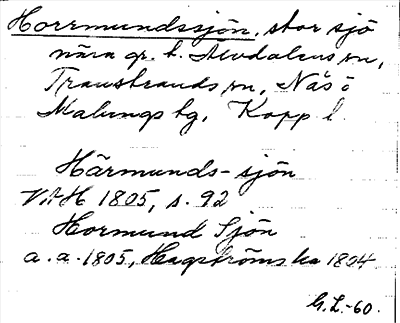 Horrmundssjön, stor sjö
nära gr. t. Älvdalens sn,
Transtrands sn, Näs i
Malungs tg, Kopp l.
Härmunds-sjön
VAH 1805, s. 92
Hormund Sjön
a. a. 1805, Hagströms ka 1804
G.L.-60.